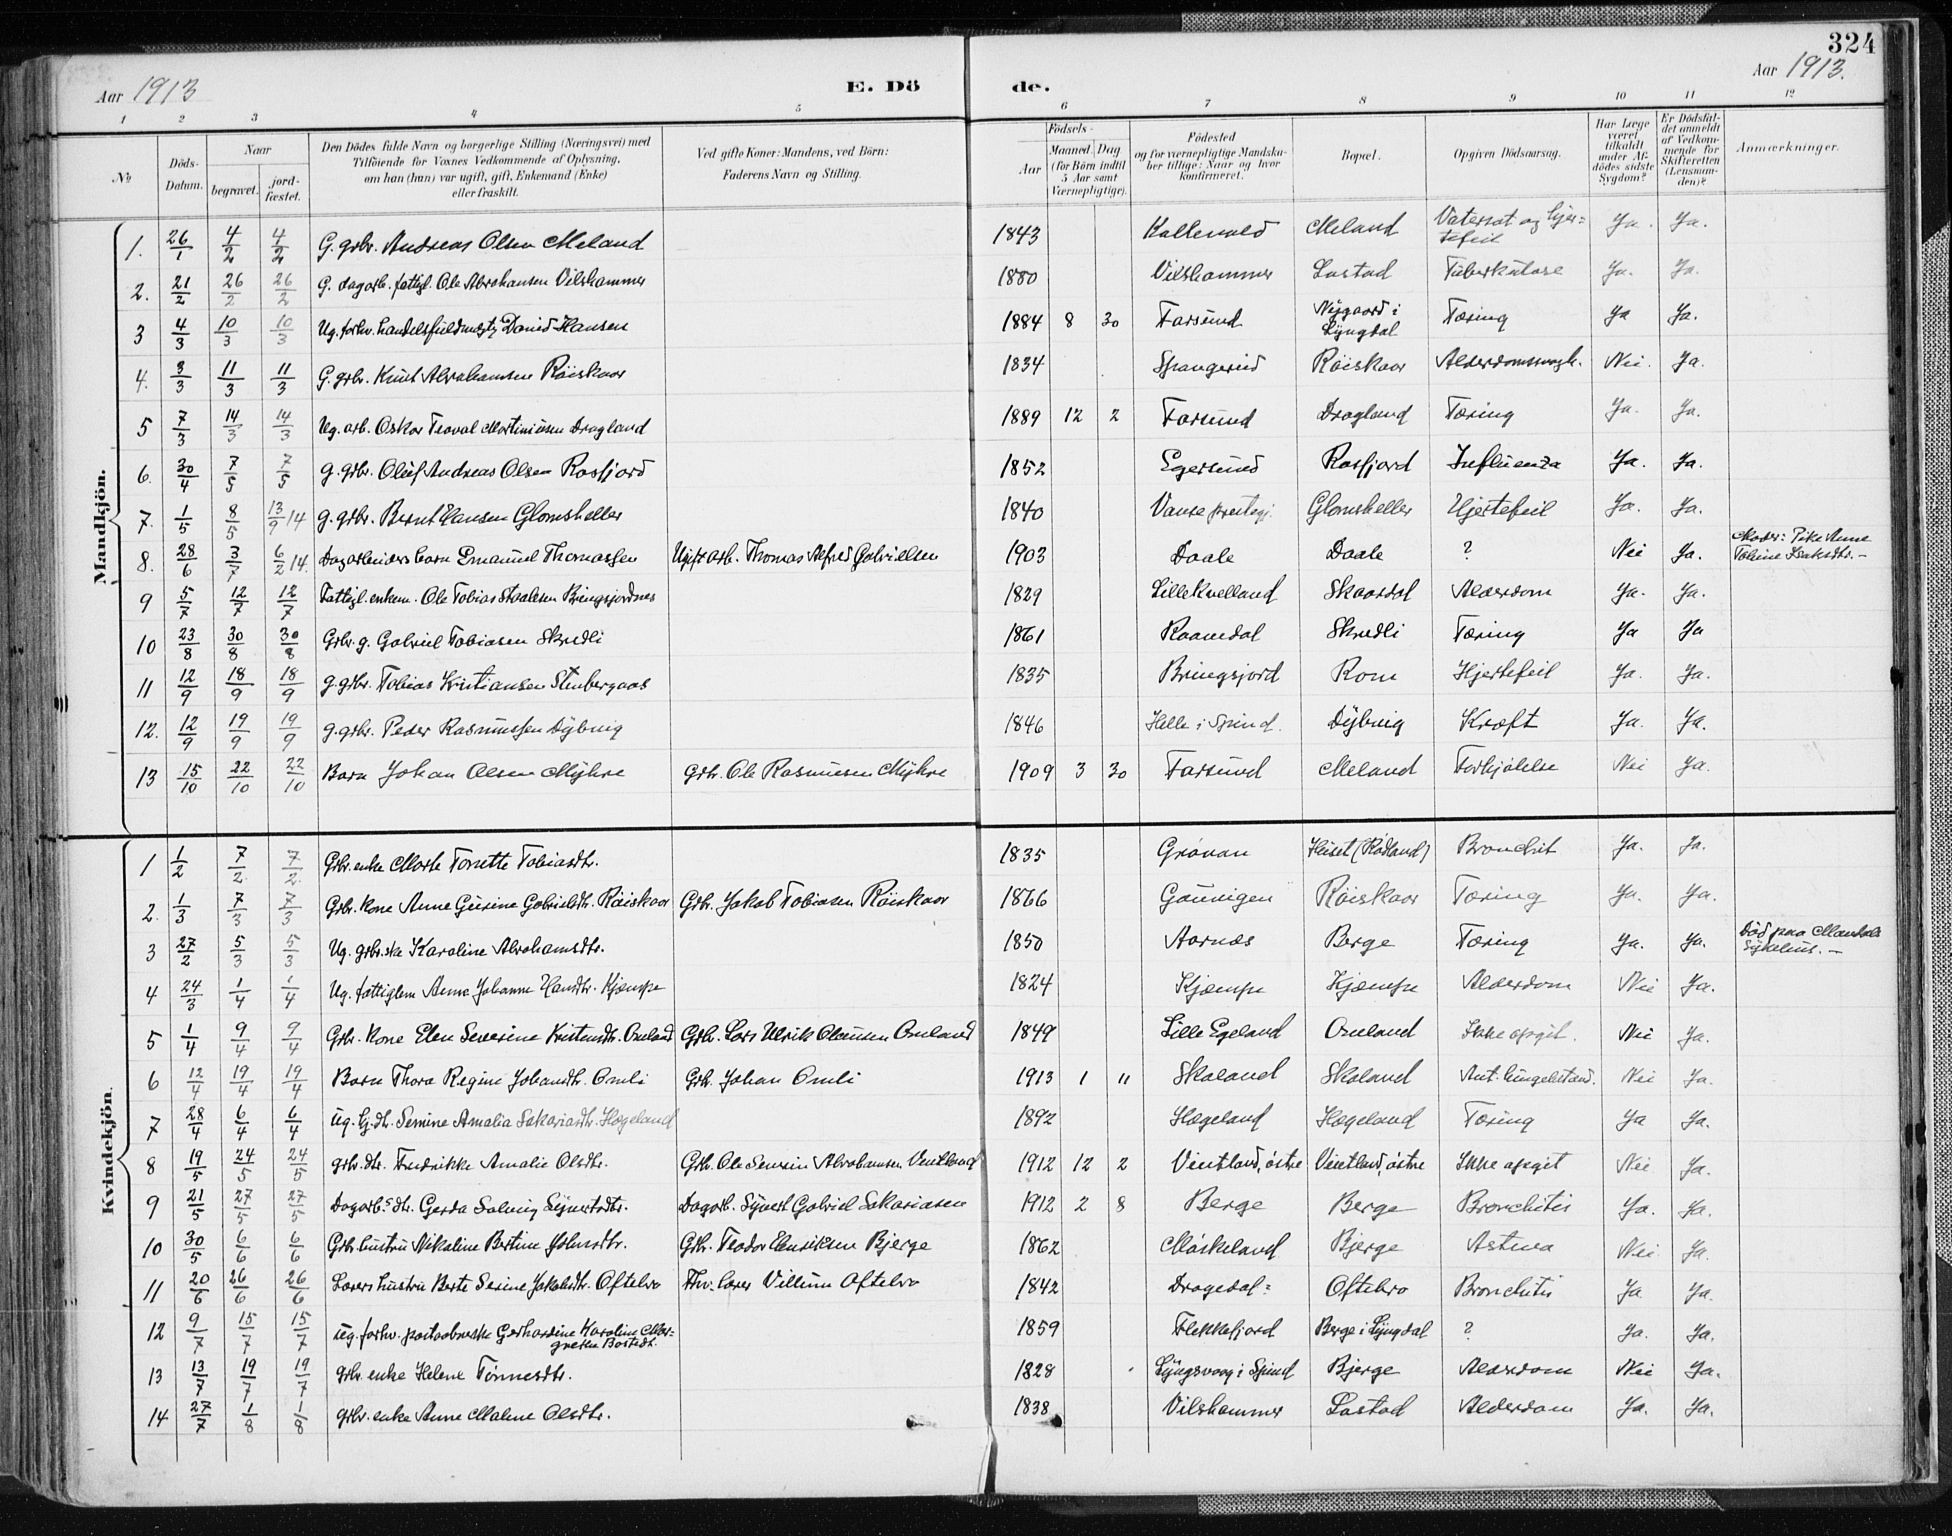 324
Aar 1913
E. Dö
de.
Aar 1913.
1 2 3 4 5 6 7 8 9 10 11 12
№
Döds-Datum.
Naar
begravet.
jord-fæstet.
Den Dödes fulde Navn og borgerlige Stilling (Næringsvei) med
Tilföiende for Voxnes Vedkommende af Oplysning,
om han (hun) var ugift, gift, Enkemand (Enke)
eller fraskilt.
Ved gifte Koner: Mandens, ved Börn:
Faderens Navn og Stilling.
Födsels-
Aar
Maaned
Dag
(for Börn indtil
5 Aar samt
Værnepligtige).
Födested
og for værnepligtige Mandska-
ber tillige: Naar og hvor
konfirmeret.
Bopæl.
Opgiven Dödsaarsag.
Har Læge
været
tilkaldt
under Af-
dödes sidste
Sygdom?
Er Dödsfal-
det anmeldt
af Vedkom-
mende for
Skifteretten
(Lensman-
den)?
Anmærkninger.
Mandkjön.
1. 26/1 4/2 4/2 G. grbr. Andreas Olsen Meland 1843 Meland Vatersot og Hjer-
tefeil Ja. Ja.
2. 21/2 26/2 26/2 G. dagarb. fattigl. Ole Abrahamsen Vilshammer 1880 Vilshammer Lostad Tuberkulose Ja. Ja.
3 4/3 10/3 10/3 Ug. forhv. handelsfuldmegtg David Hansen 1884 8 30 Farsund Nygaard i
Lyngdal Tæring Ja Ja.
4. 3/3 11/3 11/3 G. grbr. Knut Abrahamsen Röiskaar 1834 Spangerid Röiskaar Alderdomssvagh. Nei. Ja.
5 7/3 14/3 14/3 Ug. arb. Oskar Teoval Martiniusen Dragland 1889 12 2 Farsund Dragland Tæring Ja. Ja.
6. 30/4 7/5 7/5 g. grbr. Oluf Andreas Olsen Rosfjord 1852 Egersund Rosfjord Influenza Ja. Ja.
7. 1/5 8/5 13/9 14 g. grbr. Bernt Hansen Glomsheller 1840 Vanse prestegj. Glomsheller Hjertefeil Ja. Ja.
8. 28/6 3/7 6/2 14. Dagarbeiders barn Emanuel Thomassen Ugift arb. Thomas Alfred Gabrielsen 1903 Daale Daale ? Nei Ja. Moder: Pike Anne
Tobine Isaksdtr. –
9 5/7 12/7 12/7 Fattigl. enkem. Ole Tobias Staalesen Bringsjordnes 1829 Lille Kvelland Skaardal Alderdom Ja. Ja.
10 23/8 30/8 30/8 Grbr. g. Gabriel Tobiasen Skredli 1861 Raamdal Skredli Tæring Ja Ja
11 12/9 18/9 18/9 g. grbr. Tobias Kristiansen Stubergaas 1835 Bringsjord Rom Hjertefeil Ja. Ja.
12. 12/9 19/9 19/9 g. grbr. Peder Rasmussen Dybvig 1846 Helle i Spind. Dybvig Kræft Ja. Ja.
13 15/10 22/10 22/10 Barn Johan Olsen Myhre Grbr. Ole Rasmusen Myhre 1909 3 30 Farsund Meland Forkjölelse Nei Ja.
Kvindekjön.
1 1/2 7/2 7/2 Grbr. enke Marte Tonette Tobiasdtr. 1835 Grövan Huset (Rödland) Bronchit Ja. Ja.
2. 1/3 7/3 7/3 Grbr. kone Anne Gurine Gabrielsdtr. Röiskaar Grbr. Jakob Tobiasen Röiskaar 1866 Gaunigen Röiskaar Tæring Ja. Ja.
3 27/2 5/3 5/3 Ug. grbr.ske Karoline Abrahamsdtr. 1850 Aarnes Berge Tæring Ja. Ja. Död paa Mandals
Sykehus. –
4 24/3 1/4 1/4 Ug. fattiglem Anne Johanne Hansdtr. Kjæmpe 1824 Kjæmpe Kjæmpe Alderdom Nei Ja.
5 1/4 9/4 9/4 Grbr. kone Elen Severine Kristensdtr. Omland Grbr. Lars Ulrik Clausen Omland 1849 Lille Egeland Omland Ikke opgit. Nei Ja.
6 12/4 19/4 19/4 Barn Thora Regine Johansdtr. Omli Grbr. Johan Omli 1913 1 11 Skoland Skoland Ant. lungebetænd. Nei Ja.
7 28/4 6/4 6/4 Ug. Gj.dtr. Semine Amalia Sakariasdtr. Hægeland 1892 Hægeland Hægeland Tæring Ja Ja.
8 19/5 24/5 24/5 grbr. dtr. Fredrikke Amalie Olsdtr. Grbr. Ole Severin Abrahamsen Vintland 1912 12 2 Vintland, östre Vintland, östre Ikke opgit Nei Ja.
9 21/5 27/5 27/5 Dagarb.s dtr. Gerda Solvig Syvertsdtr. Dagarb. Syvert Gabriel Sakariasen 1912 2 8 Berge Berge Bronchitis Ja. Ja.
10 30/5 6/6 6/6 Grbr. hustru Nikoline Bertine Johnsdtr. Grbr. Teodor Henriksen Bjerge 1862 Möskeland Bjerge Astma Nei Ja.
11 20/6 26/6 26/6 Lærers hustru Berte Serine Jakobsdtr. Oftebro Fhv. lærer Villum Oftebro 1842 Dragedal Oftebro Bronchitis Ja Ja.
12 9/7 15/7 15/7 Ug. forhv. postaabnerske Gerhardine Karoline Mar-
grethe Bostedt. 1859 Flekkefjord Berge i Lyngdal ? Ja. Ja.
13 13/7 19/7 19/7 grbr. enke Helene Tönnesdtr. 1828 Lyngsvaag i Spind Bjerge Alderdom Nei Ja.
14 27/7 1/8 1/8 grbr. enke Anne Malene Olsdtr. 1838 Vilshammer Lostad Alderdom Ja. Ja.